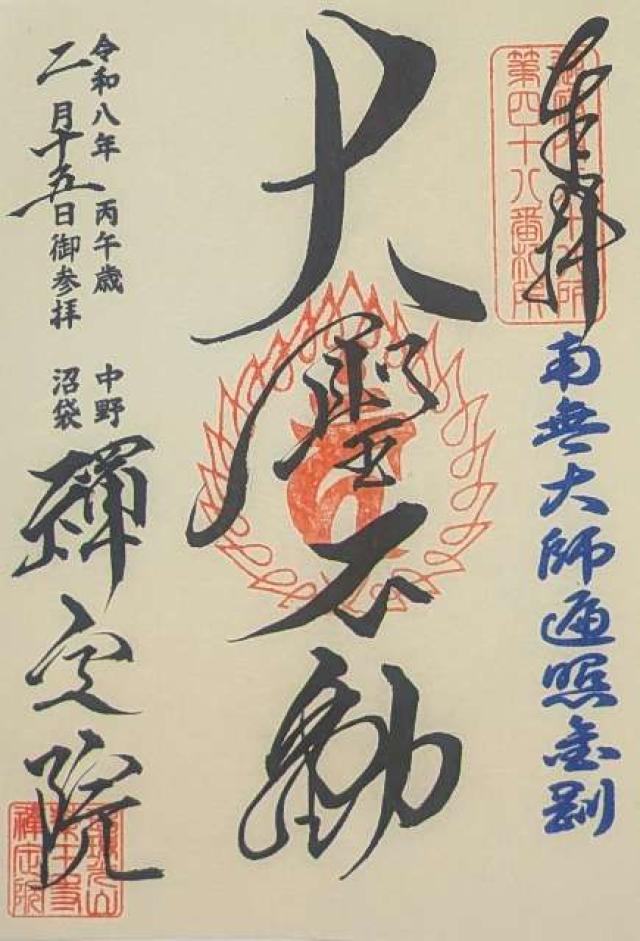 奉拝
第四十八番札所
南無大師遍照金剛
大聖不動
令和八年 丙午歳
二月十五日御参拝
中野
沼袋
禅定院
禅定院